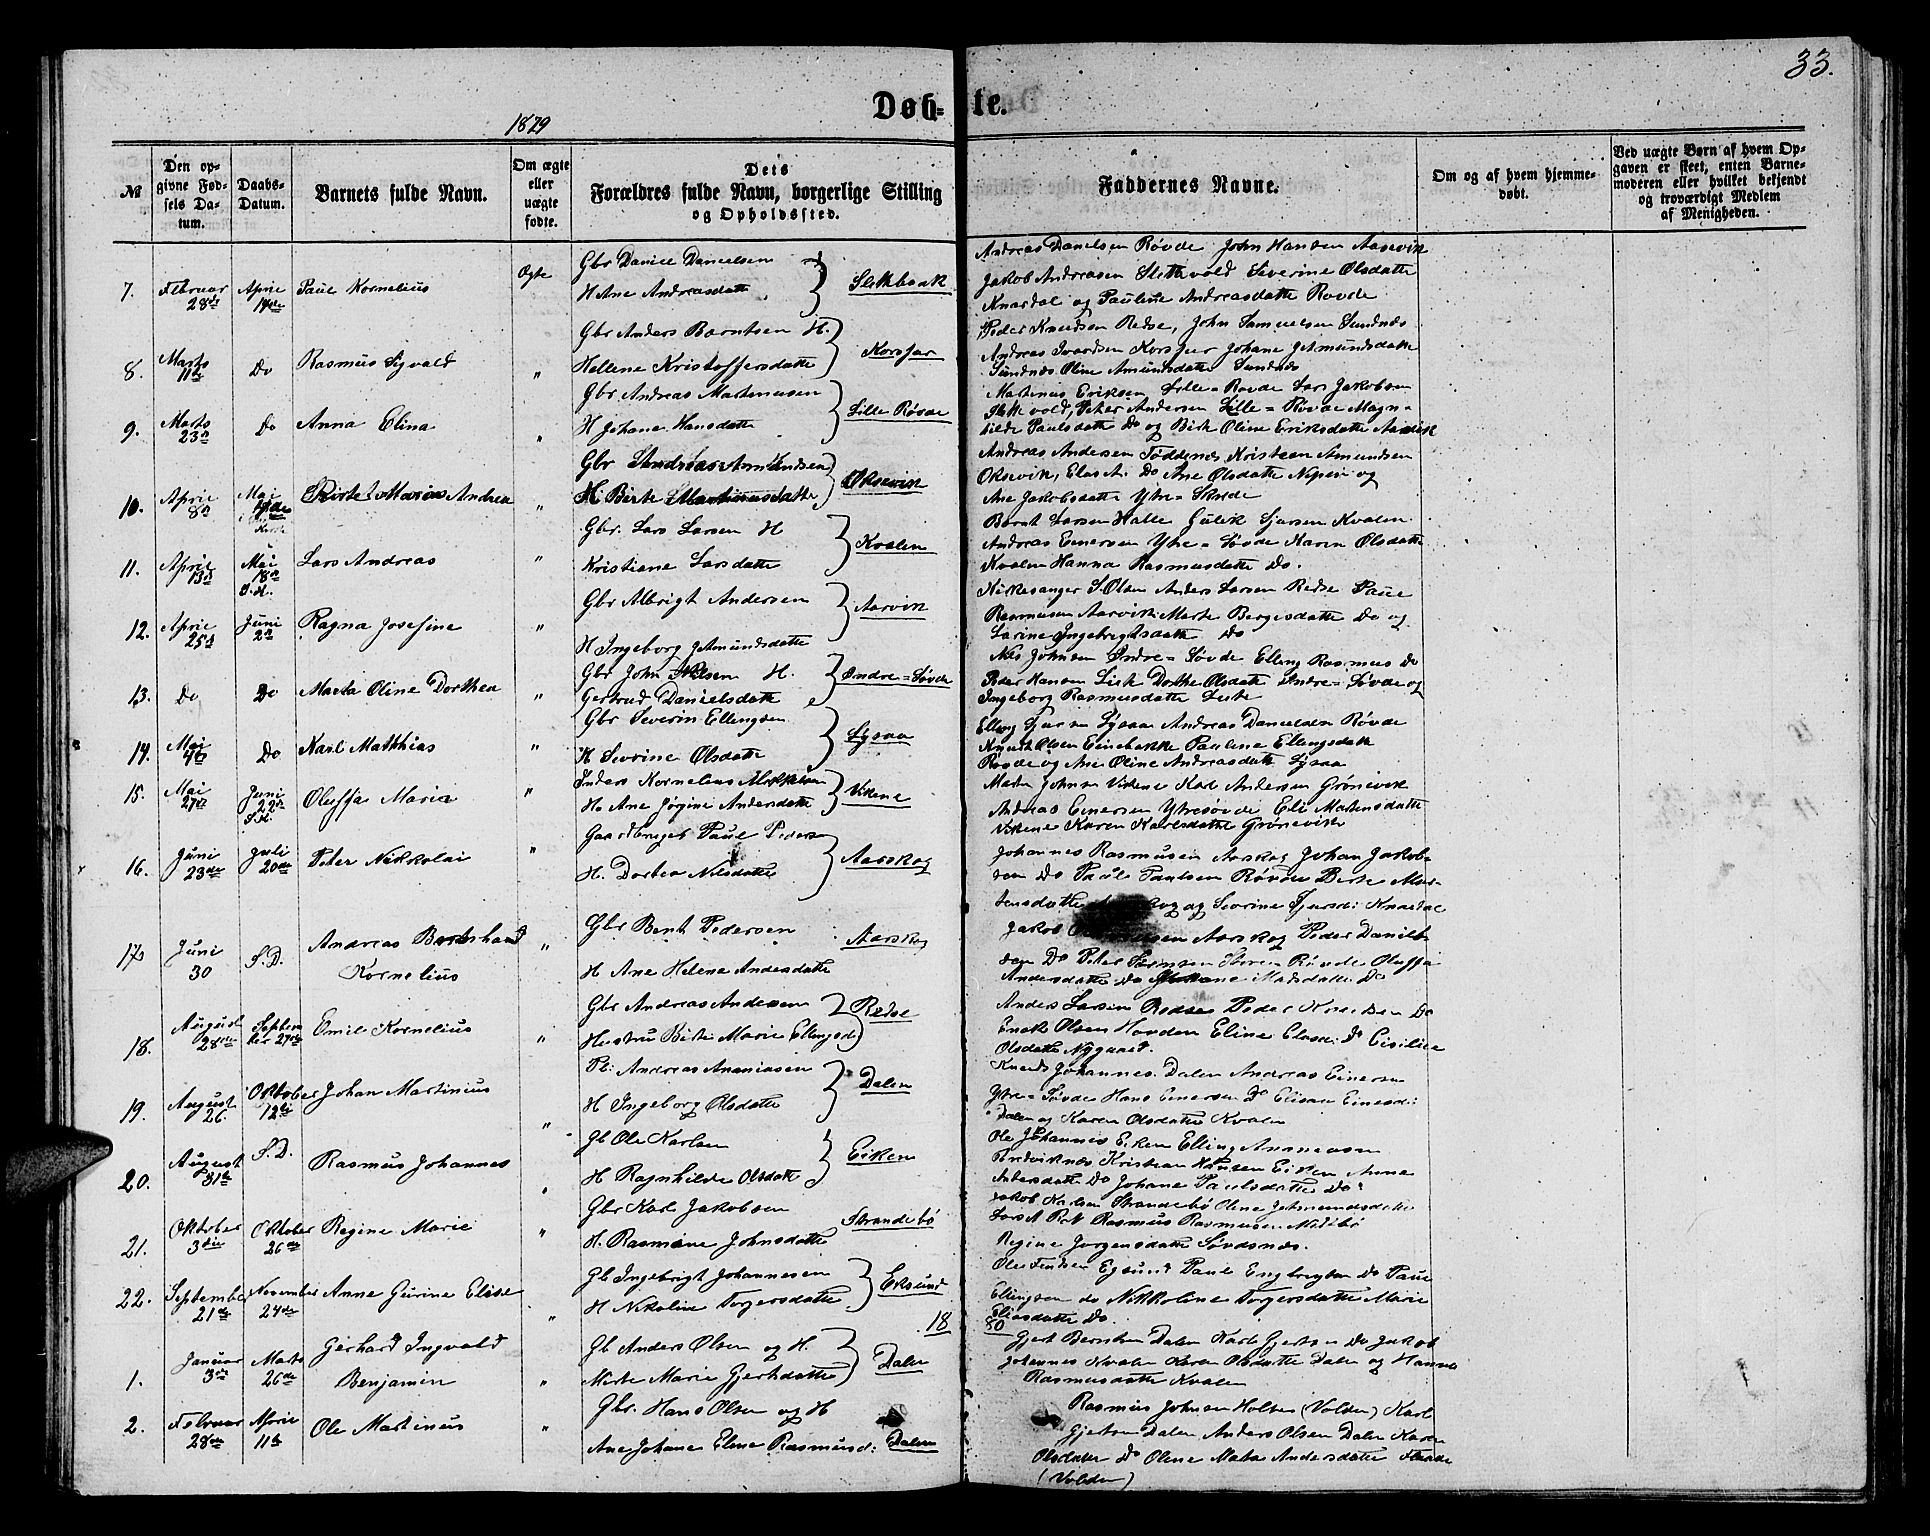 33.
Døb-te.
1879
№
Den opgivne Fødsels Datum.
Daabs-Datum.
Barnets fulde Navn.
Om ægte eller uægte fødte.
Dets Forældres fulde Navn, borgerlige Stilling og Opholdssted.
Faddernes Navne.
Om og af hvem hjemmedøbt.
Ved uægte Børn af hvem Opgaven er skeet, enten Barnemoderen eller hvilket bekjendt og troværdigt Medlem af Menigheden.
7. Februar 28de April 14de Paul Kornelius Ægte Gbr Daniel Danielsen
H Ane Andreasdatte Slethvak
Andreas Danielsen Røvde John Hansen Aasevik
Jakob Andreasen Slettevold Severine Olsdatte
Knardal og Pauline Andreasdatte Rovde
8. Marts 11te Do Rasmus Sigvald " Gbr Anders Barntsen H.
Hellene Kristoffersdatte Korsfur
Peder Knudsen Redse, John Samuelsen Sundnæs
Andreas Ivardsen Korsfur Johane J Amundsdatte
Sundnæs Oline Amundsdatte Sundnæs
9. Marts 23de Do Anna Elina " Gbr Andreas Martinusen
H Johane Hansdatte Lille Røvde
Martinus Eriksen Lille=Rovde Lars Jakobsen
Slettevold, Peter Andersen Lille=Røvde Magn=
hilde Paulsdatte Do og Birte Oline Eriksdatte Aasevik
10. April 8de Mai Birte Marie Andrea " Gbr Andreas Amundsen
H Birte Martinusdatte Oksevik
Andreas Andersen Tøddenæs Kristian Amundsen
Oksevik, Elias A. Do Ane Olsdatte Nipen og
Ane Jakobsdatte Ytre=Skrede
11. April 13de Mai 18de S.K. Lars Andreas " Gbr. Lars Larsen H
Kristiane Larsdatte Kvalen
Bernt Larsen Halle Gulik Sjursen Kvalen
Andreas Einersen Ytre=Søvde Karen Olsdatte
Kvalen Hanna Rasmusdatte Do.
12. April 25de Juni 2de Ragna Josefine " Gbr Albrigt Andersen
H Ingeborg J Amundsdatte Aarvik
Kirkesanger S Olsen Anders Larsen Redse Paul
Rasmusen Aarvik Marte Bergesdatte Do og
Larine Ingebrigtsdatte Do
13. Do Do Marta Oline Dorthea " Gbr John Nilsen H.
Gertrud Danielsdatte Øndre=Søvde
Nils Johnsen Øndre=Søvde Elling Rasmus Do
Peder Hansen Dorthe Olsdatte Andre=Søvde og
Ingeborg Rasmusdatte
14. Mai 4de Do Karl Matthias " Gbr Severin Ellingsen
H Sevrine Olsdatte Lysaa
Elling Lysaa Andreas Danielsen Røvde
Knut Olsen Einebakke Pauline Ellingsdatte
Røvde og Ane Oline Andreasdatte Lysaa
15. Mai 27de Juni 22de S.K. Oluffa Maria " Inders Kornelius
H. Ane Jorgine Andersdatte Vikene
Martin Johnsen Vikene Karl Andersen Grønevik
Andreas Einersen Ytresøvde Eli Martensdatte
Vikene Karen Karlsdatte Grønevik
16. Juni 23de Juli 20de Peter Nikkolai " Gaardbruger Paul Peders
H. Dorthea Nilsdatte Aarskog
Johannes Rasmusen Aarskog Johan Jakob=
sen Do Paul Paulsen Røvde Berte Mar=
tensdatte og Sevrine Sjursd: Knardal
17 Juni 30 S.D. Andreas Bernhard Kornelius " Gbr Bent Pedersen
H Ane Helene Andersdatte Aarskog
Jakob Aarskog Peder Daniel=
sen Do Peter Sørensen Store Røvde Oluffa
Andersdatte Do Madsdatte Do
18. August 28de September 27de Emil Kornelius " Gbr Andreas Andersen
Hustru Birte Marie Ellingsd Redse
Anders Larsen Redse Peder Knudsen Do
Enok Olsen Hovden Eline Elasd: Do Cicilie
Olsdatte Nygaard.
19. August 26. Oktober 12te Johan Martinius " Pl: Andreas Ananiasen
H Ingeborg Olsdatte Dalen
Knud Johannes. Dalen Andreas Einersen
Ytre=Søvde Hans Einersen Do Elisau Einesd:
Dalen og Karen Olsdatte Kvalen
20. August 31te S.D. Rasmus Johannes Gb Ole Karlsen
H Ragnhilde Olsdatte Eiken
Ole Johannes Eiken Elling Ananiasen
Kristian Hansen Eiken Anne
Andersdatte Do Johane Paulsdatte Do
21. Oktober 3die Oktober 26de Regine Marie " Gbr Karl Jakobsen
H. Rasmine Johnsdatte Strandebø
Jakob Karlsen Strandebø Oline J Amundsdatte
Rasmus Rasmusen Midtbø
Regine Jorgensdatte Søvdsnæs.
22. September 21de November 24de Anne Gurine Elise " Gb Ingebrigt Johannesen
H Nikoline Torgersdatte Eksund
Ole Egsund Paul Engbrigtsen Do Paul
Ellingsen do Nikkoline Torgersdatte Marie
Eliasdatte Do.
18 80
1. Januar 3die Marts 26de Gerhard Ingvald Benjamin " Gb Anders Olsen og H.
Merte Marie Gjertsdatte Dalen
Gjert Berntsen Dalen Karl Gjertsen Do Jakob
Johannes Kvalen Karen Olsdatte Dalen og Hanna
Rasmusdatte Kvalen
2. Februar 28de April 11te Ole Martinus " Gbr. Hans Olsen og H
Ane Johane Eline Rasmusd: Dalen
Rasmus Johnsen Holsen (Volden) Karl
Gjertsen Dalen Anders Olsen Dalen Karen
Olsdatte Do Oline Mata Andersdatte
(Volden)